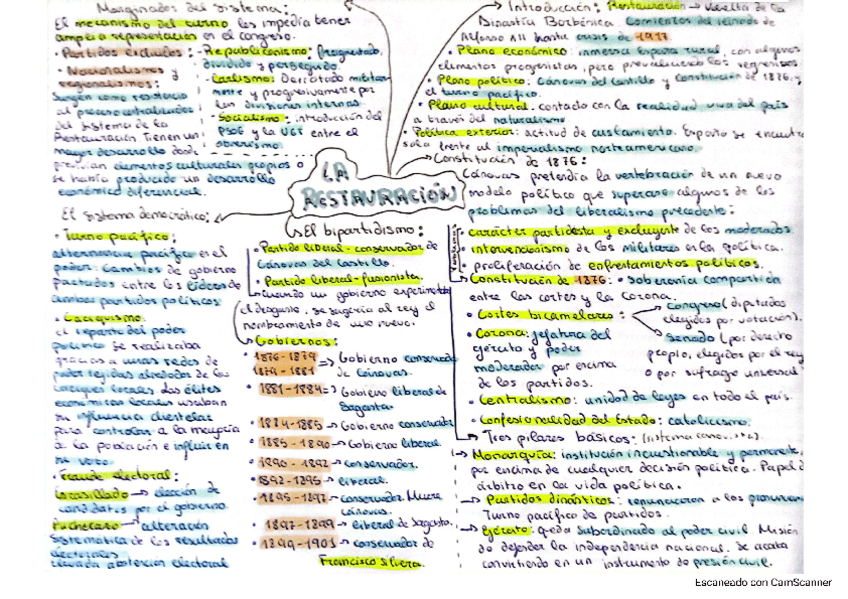 Marginados del Sistema:
El mecanismo del turno les impedía tener
amplia representación en el congreso.
• Partidos excluidos: - Republicanismo: fragmentado,
dividido y perseguido.
• Nacionalismos y
regionalismos:
- Carlismo: Derrotado militar-
mente y progresivamente por
las divisiones internas.
- Socialismo: introducción del
PSOE y la UGT entre el
obrerismo.
Surgen como resistencia
al proceso
del Sistema de la
Restauración. Tienen un
mayor desarrollo donde
elementos culturales propios o
se había producido un desarrollo
económico diferencial.
LA
RESTAURACIÓN
Introducción: Restauración → vuelta de la
Dinastía Borbónica. Comienzos del reinado de
Alfonso XII hasta crisis de 1917
• Plano económico: inmersa España rural, con algunos
elementos progresistas, pero prevaleciendo los regresivos
• Plano político: Cánovas del Castillo y constitución de 1876, y
el turno pacífico.
• Plano cultural: contacto con la realidad viva del país
a través del naturalismo
• Política exterior: actitud de aislamiento. España se encuentra
sola frente al imperialismo norteamericano.
Constitución de 1876:
Cánovas pretendía la vertebración de un nuevo
modelo político que superase algunos de los
problemas del liberalismo precedente:
carácter partidista y excluyente de los moderados.
• intervencionismo de los militares en la política.
• proliferación de enfrentamientos políticos.
Constitución de 1876: • Soberanía compartida
entre las cortes y la Corona.
• Cortes bicamerales:
Congreso (diputados
elegidos por votación).
Senado (por derecho
propio, elegidos por el rey
o por sufragio universal
• Corona: jefatura del
ejército y poder
moderador por encima
de los partidos.
• Centralismo: unidad de leyes en todo el país.
• Confesionalidad del Estado: catolicismo.
Tres pilares básicos: (sistema canovista).
Monarquía: institución incuestionable y permanente,
por encima de cualquier decisión política. Papel de
árbitro en la vida política.
Partidos dinásticos: renunciaron a los
Turno pacífico de partidos.
Ejército: queda subordinado al poder civil. Misión
de defender la independencia nacional. Se acaba
convirtiendo en un instrumento de presión civil.
El Sistema democrático:
• Turno pacífico:
alternancia pacífica en el
poder. Cambios de gobierno
pactados entre los líderes de
ambos partidos políticos.
• Caciquismo:
el reparto del poder
político se realizaba
gracias a unas redes de
poder tejidas alrededor de los
caciques locales. Las élites
económicas locales usaban
su influencia clientelar
para controlar a la mayoría
de la población e influir en
su voto.
• Fraude electoral:
Encasillado → elección de
candidatos por el gobierno
Pucherazo → alteración
sistemática de los resultados
electorales
elevada abstención electoral
El bipartidismo:
• Partido liberal-conservador de
Cánovas del Castillo.
• Partido liberal-fusionista.
Cuando un gobierno experimentaba
el desgaste, se sugería al rey el
nombramiento de uno nuevo.
Gobiernos:
• 1876-1879
1879-1881 → Gobierno conservador
de Cánovas.
• 1881-1884 → Gobierno liberal de
Sagasta.
• 1884-1885 → Gobierno conservador
• 1885-1890 → Gobierno liberal.
• 1890-1892 → conservador.
• 1892-1895 → liberal.
• 1895-1897 → conservador. Muere
Cánovas.
• 1897-1899 → liberal de Sagasta.
• 1899-1901 → conservador de
Francisco Silvera.
Escaneado con CamScanner